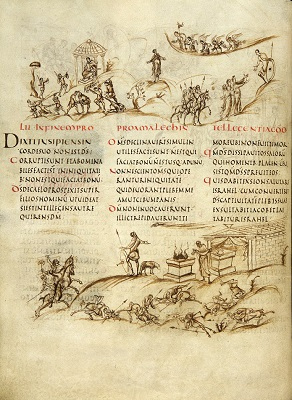 LII INFINEMPRO
DIXITINSIPIENSIN
CORDESUO NONESTDS
CORRUPTISUNT ETABOMINA
BILESFACTISUNT INIQUITATI
BUS NONESTQUIFACIATBONU
DSDECAELOPROSPEXITSUPER
FILIOSHOMINU UTUIDEAT
SIESTINTELLEGENS AUTRE
QUIRENSDM
PROAMALECHIN
OMSDECLINAUERSIMULIN
UTILESFACTISUNT NONESTQUI
FACIATBONU NONESTUSQADUNU
NONNESCIENTOMSQUIOPE
RANTURINIQUITATE
QUIDEUORANTPLEBEMME
AMUTCIBUMPANIS
DMNONINUOCAUERUNT
ILLICTREPIDAUERUNTTI
MOREUBINONFUITTIMOR
QMDSDISSIPAUITOSSAEOR
QUIHOMINIBPLACENTCON
FUSISUNT QMDSSPREUITEOS
QUISDABITEXSIONSALUTARE
ISRAHEL CUMCONUERTITDS
CAPTIUITATEPLEBISSUAE
EXSULTABITIACOBETLAE
TABITURISRAHEL